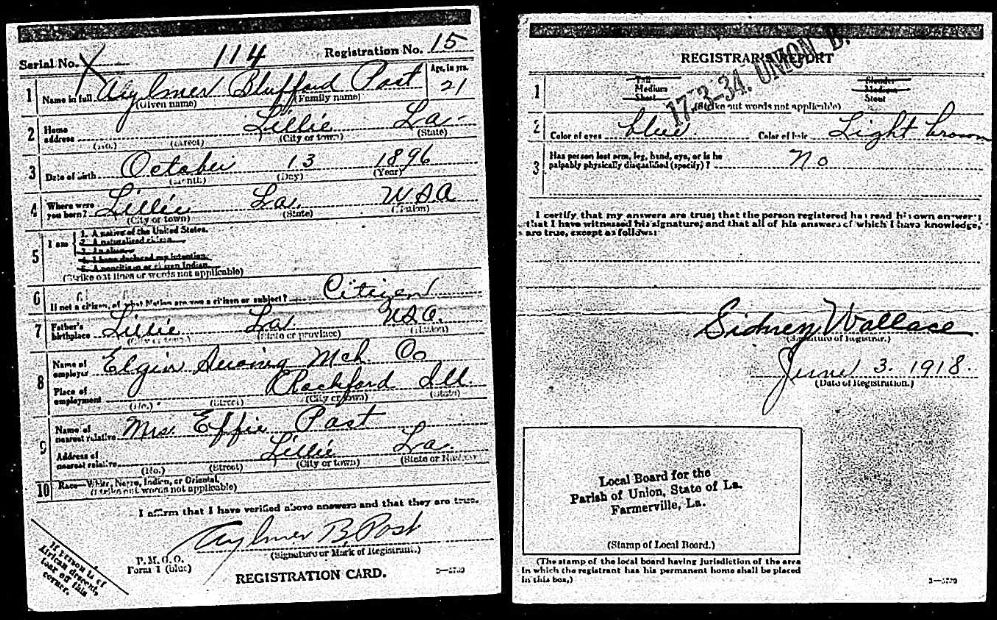 Serial No. X 114 Registration No. 15
1 Name in full Aylmer Blufford Post Age, in yrs. 21
(Given name) (Family name)
2 Home address Lillie La.
(No.) (Street) (City or town) (State)
3 Date of birth October 13 1896
(Month) (Day) (Year)
4 Where were you born? Lillie La. USA
(City or town) (State) (Nation)
5 I am
1. A native of the United States.
2. A naturalized citizen.
3. An alien.
4. I have declared my intention.
5. A noncitizen or citizen Indian.
(Strike out lines or words not applicable)
6 If not a citizen, of what Nation are you a citizen or subject? Citizen
7 Father's birthplace Lillie La. USA.
(City or town) (State or province) (Nation)
8 Name of employer Elgin Sewing Mch Co
Place of employment Rockford Ill
(No.) (Street) (City or town) (State)
9 Name of nearest relative Mrs. Effie Post
Address of nearest relative Lillie La.
(No.) (Street) (City or town) (State or Nation)
10 Race—White, Negro, Indian, or Oriental.
(Strike out words not applicable)
I affirm that I have verified above answers and that they are true.
Aylmer B Post
(Signature or Mark of Registrant.)
P. M. G. O.
Form 1 (blue)
REGISTRATION CARD.
If person is of
African descent,
tear off this
corner.
REGISTRAR'S REPORT
17-3-34. UNION
1 Tall Slender
Medium Medium
Short Stout
(Strike out words not applicable)
2 Color of eyes blue Color of hair Light brown
3 Has person lost arm, leg, hand, eye, or is he
palpably physically disqualified (specify)? no
I certify that my answers are true; that the person registered has read his own answers;
that I have witnessed his signature; and that all of his answers of which I have knowledge,
are true, except as follows:
Sidney Wallace
(Signature of Registrar.)
June 3. 1918.
(Date of Registration.)
Local Board for the
Parish of Union, State of La.
Farmerville, La.
(Stamp of Local Board.)
(The stamp of the local board having jurisdiction of the area
in which the registrant has his permanent home shall be placed
in this box.)